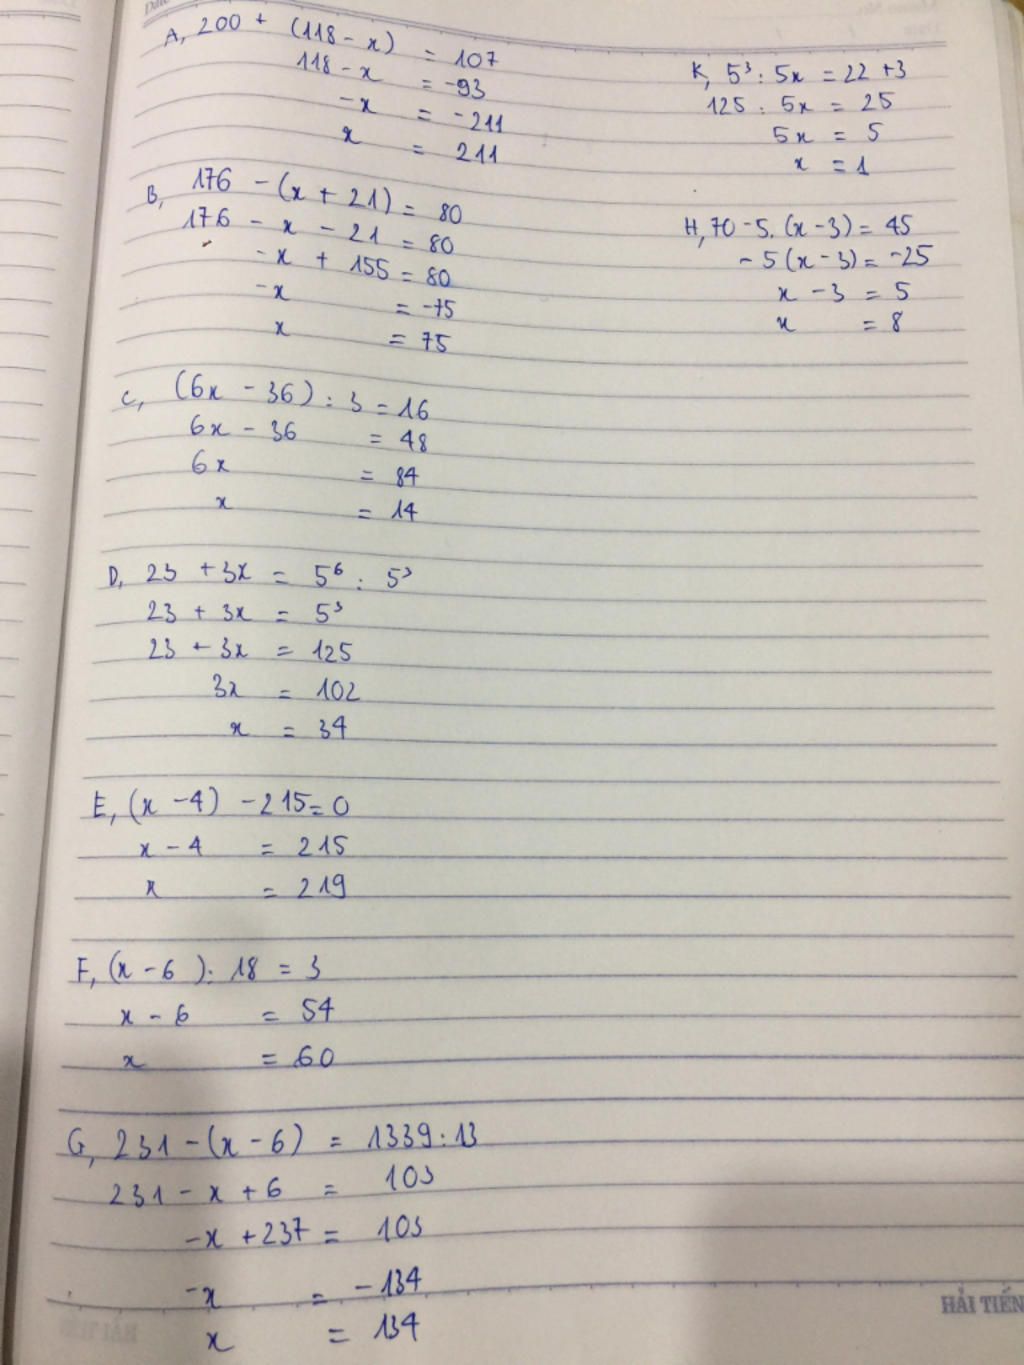 A, 200 + (118 - x) = 107
118 - x = -93
-x = -211
x = 211
B, 176 - (x + 21) = 80
176 - x - 21 = 80
-x + 155 = 80
-x = -75
x = 75
C, (6x - 36) : 3 = 16
6x - 36 = 48
6x = 84
x = 14
D, 23 + 3x = 5⁶ : 5³
23 + 3x = 5³
23 + 3x = 125
3x = 102
x = 34
E, (x - 4) - 215 = 0
x - 4 = 215
x = 219
F, (x - 6) : 18 = 3
x - 6 = 54
x = 60
G, 231 - (x - 6) = 1339 : 13
231 - x + 6 = 103
-x + 237 = 103
-x = -134
x = 134
K, 5³ : 5x = 22 + 3
125 : 5x = 25
5x = 5
x = 1
H, 70 - 5. (x - 3) = 45
- 5 (x - 3) = -25
x - 3 = 5
x = 8
HẢI TIẾN